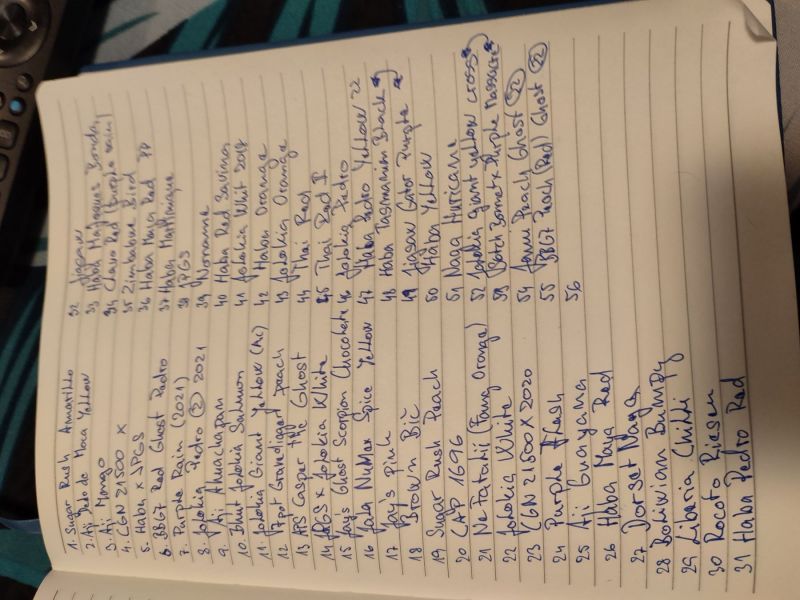 1. Sugar Rush Amarillo
2. Aji Dedo de Moca Yellow
3. Aji Mango
4. CGN 21500 X
5. Haba x JPGS
6. BBG7 Red Ghost Pedro
7. Purple Rain (2021)
8. Jolokia Pedro (2) 2021
9. Aji Ahuachapan
10. Bhut Jolokia Salmon
11. Jolokia Giant Yellow (Ac)
12 7pot Gravedigger peach
13 ARS Casper Ghost
14 JPGS x Jolokia White
15 Jays Ghost Scorpion Chocolate
16 Jala NuMex Spice Yellow
17 Jays pink
18 Brown Bič
19 Sugar Rush Peach
20 CAP 1696
21 Nefatalii (Fawn Orange)
22 Jolokia White
23 CGN 21500 X 2020
24 Purple Flash
25 Aji Guayana
26 Haba Maya Red
27 Dorset Naga
28 Bolivian Bumpy
29 Liberia Chilli
30 Rocoto Riesen
31 Haba Pedro Red
32 Jigsaw
33 Haba Magnum Bonda
34 Clavo Red (Purple rain)
35 Zimbabwe Bird
36 Haba Maya Red PP
37 Haba Martinique
38 JPGS
39 Noname
40 Haba Red Savinas
41 Jolokia Whit 2018
42 Haba Orange
43 Jolokia Orange
44 Thai Red
45 Thai Red II
46 Jolokia Pedro
47 Haba Pedro Yellow 22
48 Haba Tasmanian Black
49 Jigsaw Gator Purple
50 Haba Yellow
51 Naga Huricane
52 Jolokia giant yellow cross
53 Butch Bonnet x Purple Massacre
54 Peach Ghost (22)
55 BBG7 Peach (Red) Ghost (22)
56